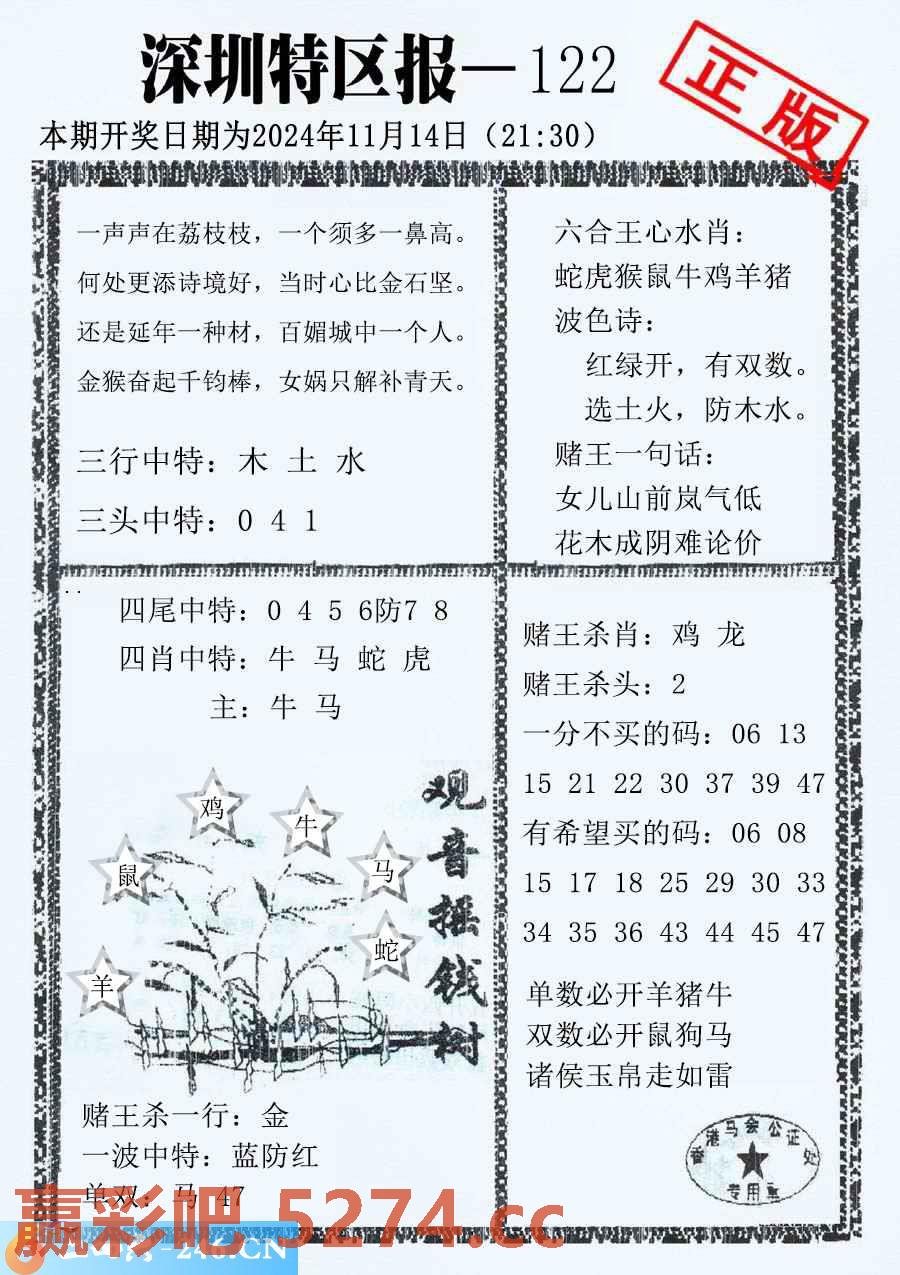 深圳特区报—122
正版
本期开奖日期为2024年11月14日（21:30）
一声声在荔枝枝，一个须多一鼻高。
何处更添诗境好，当时心比金石坚。
还是延年一种材，百媚城中一个人。
金猴奋起千钧棒，女娲只解补青天。
三行中特：木 土 水
三头中特：0 4 1
六合王心水肖：
蛇虎猴鼠牛鸡羊猪
波色诗：
红绿开，有双数。
选土火，防木水。
赌王一句话：
女儿山前岚气低
花木成阴难论价
四尾中特：0 4 5 6防7 8
四肖中特：牛 马 蛇 虎
主：牛 马
鸡
牛
鼠
马
蛇
羊
观音摇钱树
赌王杀一行：金
一波中特：蓝防红
单双：马 47
赌王杀肖：鸡 龙
赌王杀头：2
一分不买的码：06 13
15 21 22 30 37 39 47
有希望买的码：06 08
15 17 18 25 29 30 33
34 35 36 43 44 45 47
单数必开羊猪牛
双数必开鼠狗马
诸侯玉帛走如雷
香港马会公证处
专用章
赢彩吧 5274.cc
-246.CN